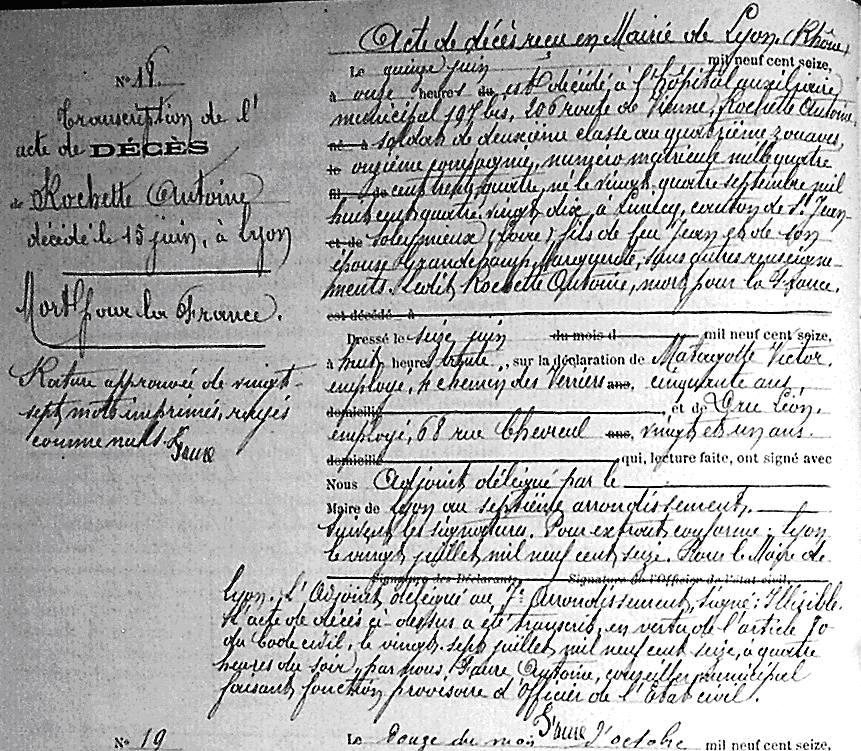 N° 18
Transcription de l'
acte de DÉCÈS
de Rochette Antoine
décédé le 15 juin, à Lyon
Mort pour la France.
Rature approuvée de vingt-
sept mots imprimés, rayés
comme nuls. Faure
Acte de décès reçu en Mairie de Lyon (Rhône)
Le quinze juin mil neuf cent seize,
à onze heures du est décédé à l'hôpital auxiliaire
municipal 197 bis, 206 route de Vienne, Rochette Antoine,
né à soldat de deuxième classe au quatrième zouaves,
le onzième compagnie, numéro matricule mille quatre
fil de cent trente quatre, né le vingt quatre septembre mil
huit cent quatre-vingt dix, à Luriecq, canton de St Jean-
et de Soleymieux (Loire) fils de feu Jean et de son
épouse Marguerite, sans autres renseigne-
ments. Ledit Rochette Antoine, mort pour la France.
est décédé à
Dressé le seize juin du mois d mil neuf cent seize,
à huit heures trente, sur la déclaration de Victor,
employé, 4 chemin des Verriers ans, cinquante ans,
domicilié et de Grue Léon,
employé, 68 rue Chevreul ans, vingt et un ans.
domicilié qui, lecture faite, ont signé avec
Nous Adjoint délégué par le
Maire de Lyon au septième arrondissement,
Suivent les signatures. Pour extrait conforme : Lyon
le vingt juillet mil neuf cent seize. Pour le Maire de
Signature des Déclarants, Signature de l'Officier de l'état civil,
Lyon. L'Adjoint délégué au 7e Arrondissement, signé : Illisible.
L'acte de décès ci-dessus a été transcrit, en vertu de l'article 70
du Code civil, le vingt-sept juillet mil neuf cent seize, à quatre
heures du soir, par nous, Faure Antoine, conseiller municipal
faisant fonction provisoire d'Officier de l'Etat civil.
Faure
N° 19
Le douze du mois d'octobre mil neuf cent seize,